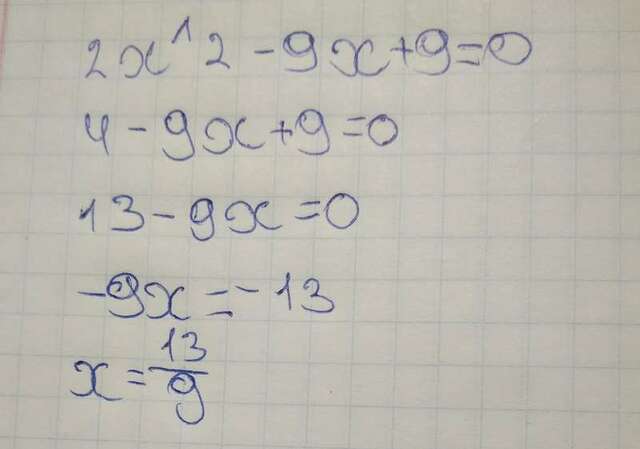 2x^2-9x+9=0
4-9x+9=0
13-9x=0
-9x=-13
x=13/9